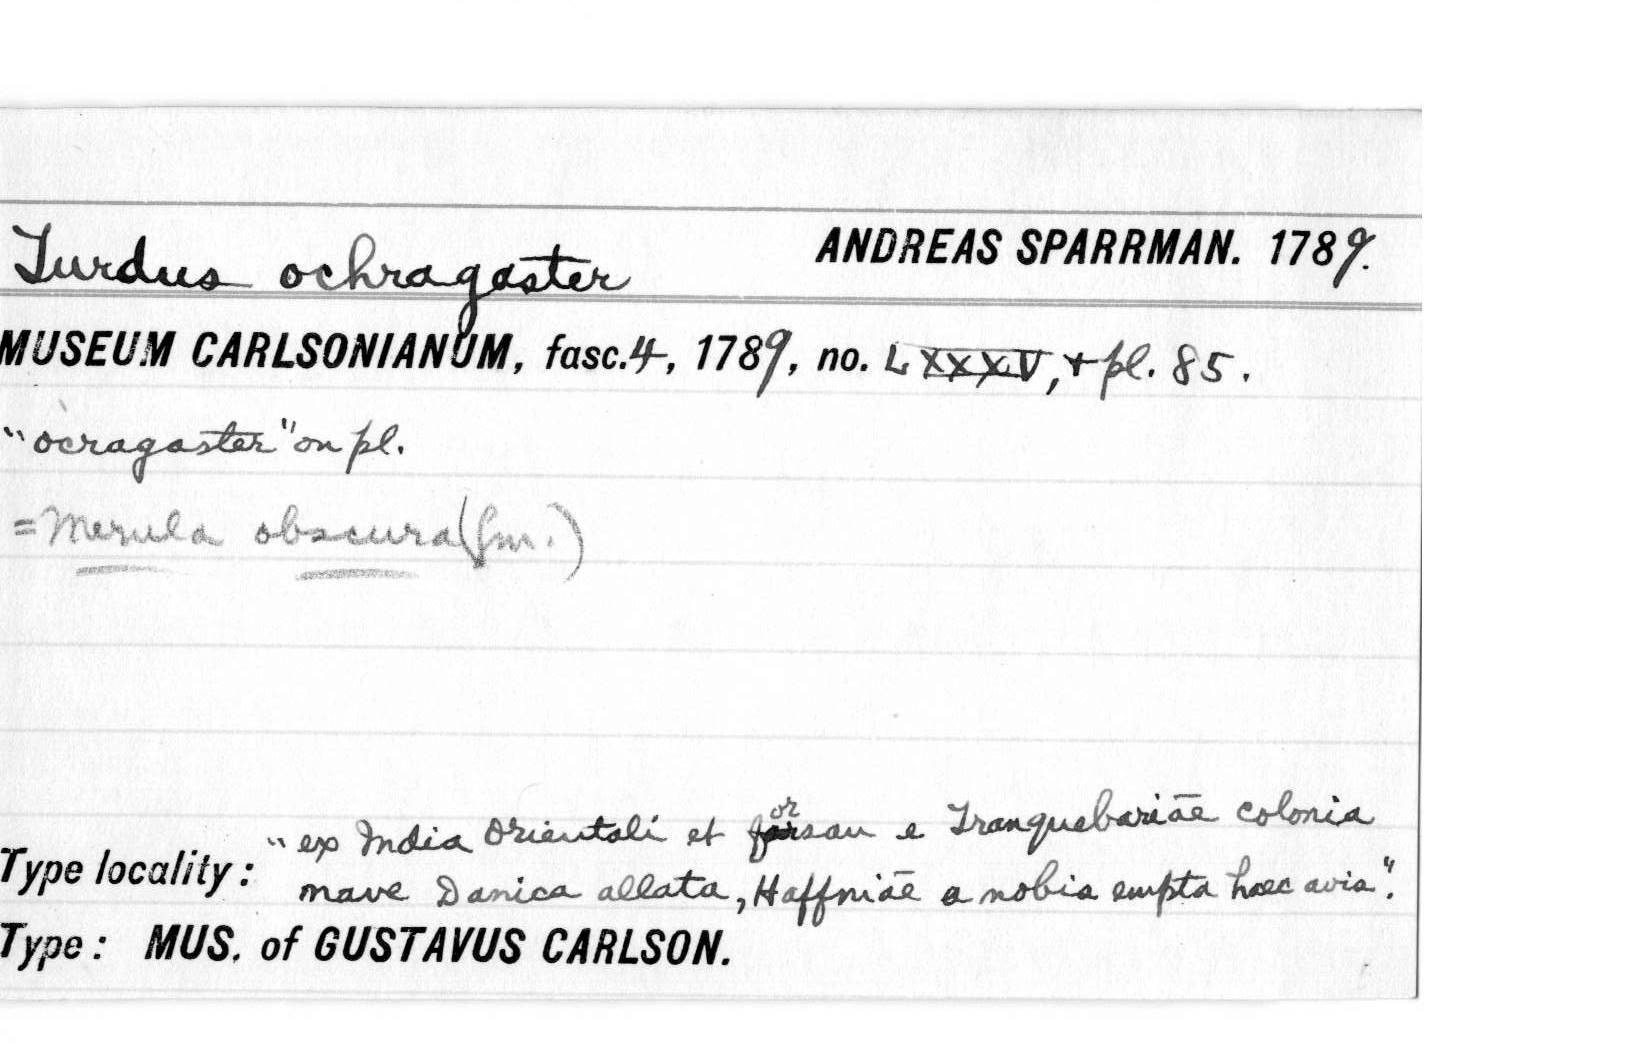 Turdus ochragaster ANDREAS SPARRMAN. 1789.
MUSEUM CARLSONIANUM, fasc. 4, 1789, no. LXXXV, + pl. 85.
"ocragaster" on pl.
= Merula obscura (Gm.)
"ex India Orientali et forsan e Tranquebariae colonia
Type locality: nave Danica allata, Haffniae a nobis empta haec avis".
Type: MUS. of GUSTAVUS CARLSON.